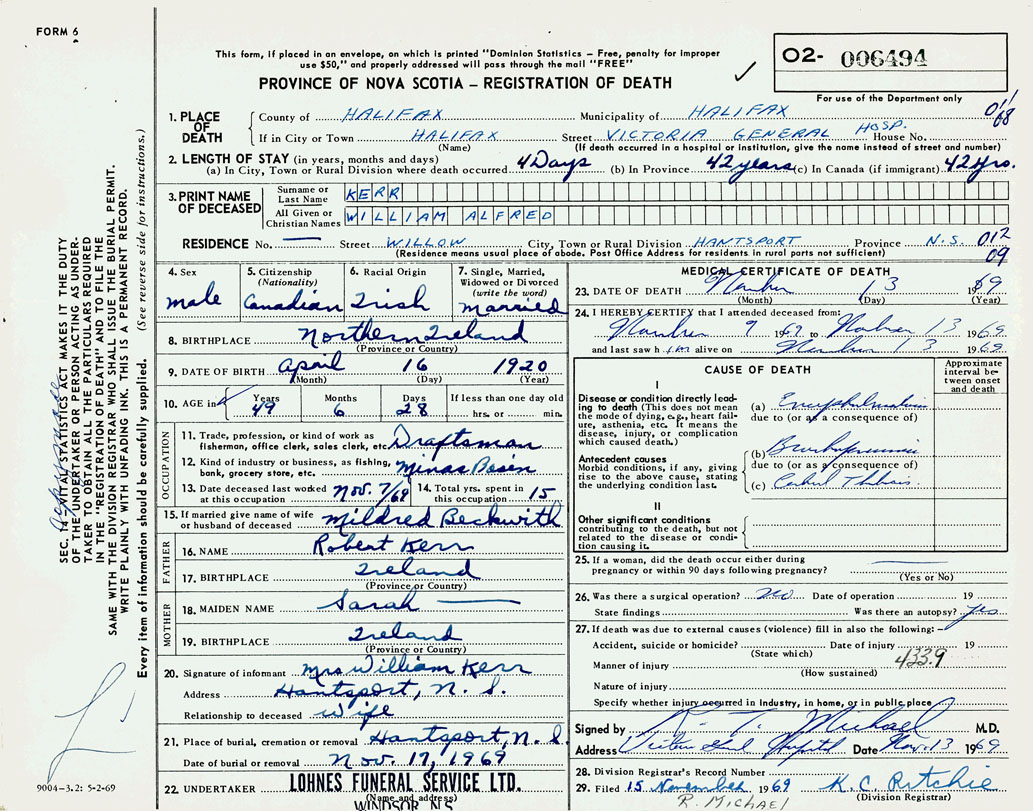 FORM 6
This form, if placed in an envelope, on which is printed "Dominion Statistics – Free, penalty for improper
use $50," and properly addressed will pass through the mail "FREE"
PROVINCE OF NOVA SCOTIA – REGISTRATION OF DEATH
O2- 006494
For use of the Department only
011
68
1. PLACE OF DEATH
County of HALIFAX Municipality of HALIFAX
If in City or Town HALIFAX Street VICTORIA GENERAL HOSP. House No.
(Name) (If death occurred in a hospital or institution, give the name instead of street and number)
2. LENGTH OF STAY (in years, months and days)
(a) In City, Town or Rural Division where death occurred 4 Days (b) In Province 42 years (c) In Canada (if immigrant) 42 Yrs.
3. PRINT NAME OF DECEASED
Surname or Last Name KERR
All Given or Christian Names WILLIAM ALFRED
RESIDENCE No. — Street WILLOW City, Town or Rural Division HANTSPORT Province N.S. 012
09
(Residence means usual place of abode. Post Office Address for residents in rural parts not sufficient)
4. Sex
male
5. Citizenship
(Nationality)
Canadian
6. Racial Origin
Irish
7. Single, Married,
Widowed or Divorced
(write the word)
Married
8. BIRTHPLACE Northern Ireland
(Province or Country)
9. DATE OF BIRTH April 16 1920
(Month) (Day) (Year)
10. AGE in Years Months Days If less than one day old
49 6 28 hrs. or min.
OCCUPATION
11. Trade, profession, or kind of work as
fisherman, office clerk, sales clerk, etc. Draftsman
12. Kind of industry or business, as fishing,
bank, grocery store, etc. Minas Basin
13. Date deceased last worked
at this occupation Nov. 7/69
14. Total yrs. spent in
this occupation 15
15. If married give name of wife
or husband of deceased Mildred Beckwith
FATHER
16. NAME Robert Kerr
17. BIRTHPLACE Ireland
(Province or Country)
MOTHER
18. MAIDEN NAME Sarah —
19. BIRTHPLACE Ireland
(Province or Country)
20. Signature of informant Mrs William Kerr
Address Hantsport, N. S.
Relationship to deceased Wife
21. Place of burial, cremation or removal Hantsport, N. S.
Date of burial or removal Nov. 17, 1969
22. UNDERTAKER LOHNES FUNERAL SERVICE LTD.
(Name and address)
WINDSOR, N.S.
MEDICAL CERTIFICATE OF DEATH
23. DATE OF DEATH November 13 1969
(Month) (Day) (Year)
24. I HEREBY CERTIFY that I attended deceased from:
November 9 1969 to November 13 1969
and last saw him alive on November 13 1969
CAUSE OF DEATH
Approximate
interval be-
tween onset
and death
I
Disease or condition directly lead-
ing to death (This does not mean
the mode of dying, e.g., heart fail-
ure, asthenia, etc. It means the
disease, injury, or complication
which caused death.)
(a) Encephalomalacia
due to (or as a consequence of)
Antecedent causes
Morbid conditions, if any, giving
rise to the above cause, stating
the underlying condition last.
(b) Bronchopneumonia
due to (or as a consequence of)
(c)
II
Other significant conditions
contributing to the death, but not
related to the disease or condi-
tion causing it.
25. If a woman, did the death occur either during
pregnancy or within 90 days following pregnancy? —
(Yes or No)
26. Was there a surgical operation? No Date of operation 19
State findings Was there an autopsy? Yes
27. If death was due to external causes (violence) fill in also the following:
Accident, suicide or homicide? Date of injury 19
(State which)
433.9
Manner of injury
(How sustained)
Nature of injury
Specify whether injury occurred in Industry, in home, or in public place
Signed by R. T. Michael M.D.
Address Victoria Genl Hospital Date Nov. 13 1969
28. Division Registrar's Record Number
29. Filed 15 November 1969 K. C. Ritchie
(Division Registrar)
R. MICHAEL
SEC. 14 – VITAL STATISTICS ACT MAKES IT THE DUTY
OF THE UNDERTAKER OR PERSON ACTING AS UNDER-
TAKER TO OBTAIN ALL THE PARTICULARS REQUIRED
IN THE "REGISTRATION OF DEATH" AND TO FILE THE
SAME WITH THE DIVISION REGISTRAR WHO SHALL ISSUE THE BURIAL PERMIT.
WRITE PLAINLY WITH UNFADING INK. THIS IS A PERMANENT RECORD.
Every item of information should be carefully supplied. (See reverse side for instructions.)
9004-3.2: 5-2-69